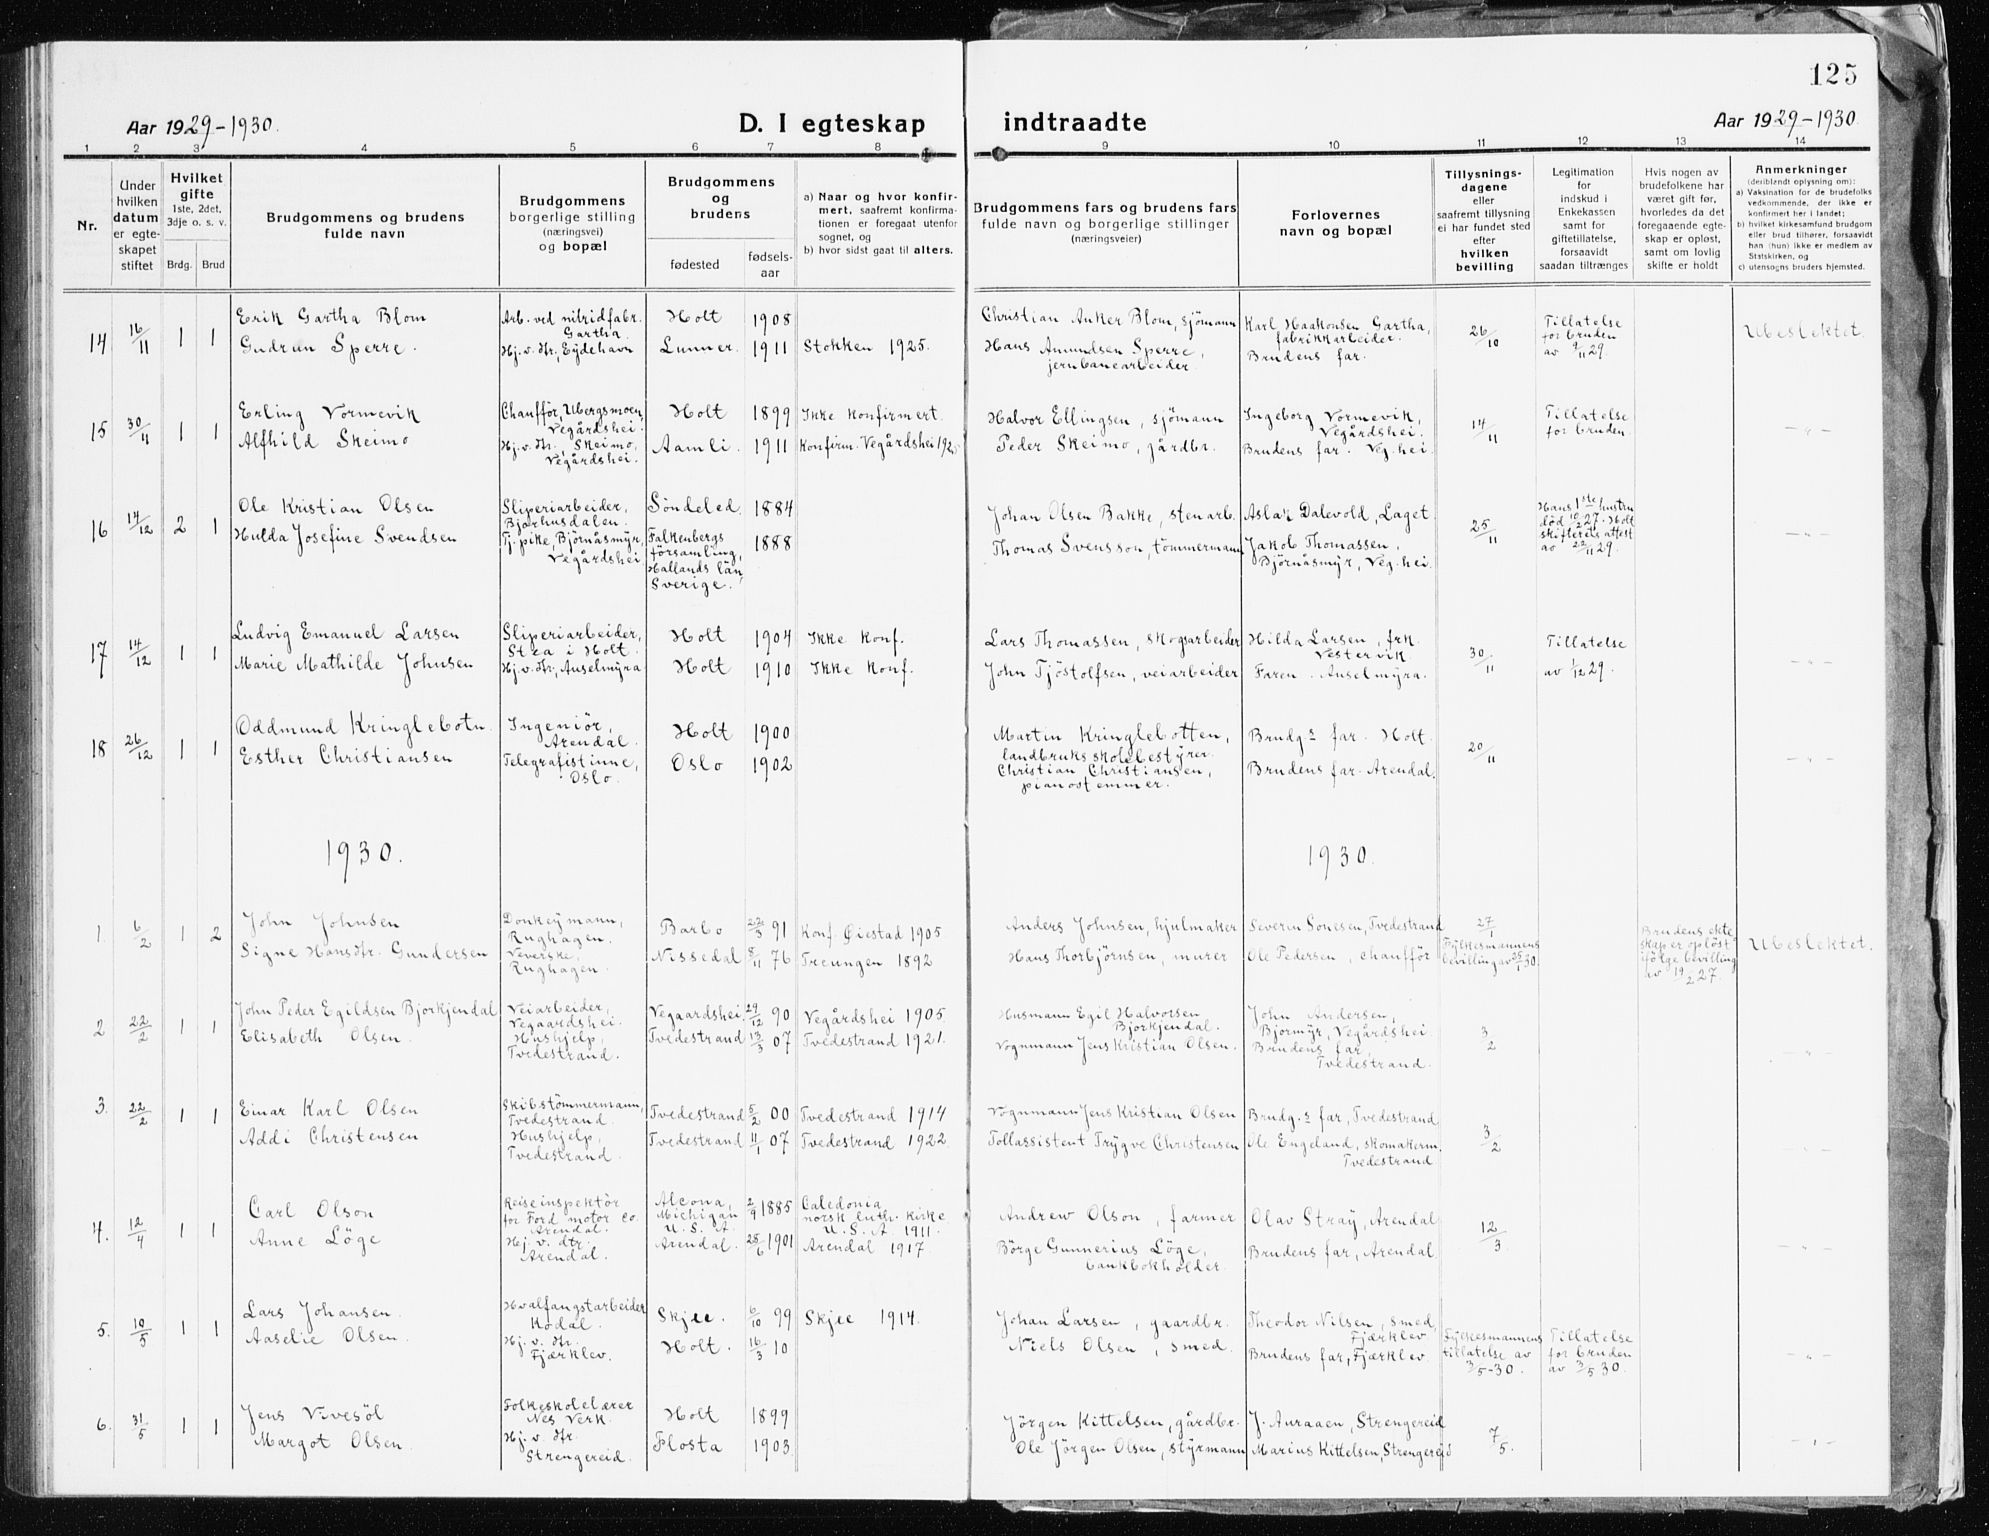 125
Aar 1929-1930.
D. I egteskap
indtraadte
Aar 1929-1930.
1 2 3 4 5 6 7 8 9 10 11 12 13 14
Nr.
Under
hvilken
datum
er egte-
skapet
stiftet
Hvilket
gifte
1ste, 2det,
3dje o. s. v.
Brdg. Brud
Brudgommens og brudens
fulde navn
Brudgommens
borgerlige stilling
(næringsvei)
og bopæl
Brudgommens
og
brudens
fødested
fødsels-
aar
a) Naar og hvor konfir-
mert, saafremt konfirma-
tionen er foregaat utenfor
sognet, og
b) hvor sidst gaat til alters.
Brudgommens fars og brudens fars
fulde navn og borgerlige stillinger
(næringsveier)
Forlovernes
navn og bopæl
Tillysnings-
dagene
eller
saafremt tillysning
ei har fundet sted
efter
hvilken
bevilling
Legitimation
for
indskud i
Enkekassen
samt for
giftetillatelse,
forsaavidt
saadan tiltrænges
Hvis nogen av
brudefolkene har
været gift før,
hvorledes da det
foregaaende egte-
skap er opløst,
samt om lovlig
skifte er holdt
Anmerkninger
(deriblandt oplysning om):
a) Vaksination for de brudefolks
vedkommende, der ikke er
konfirmert her i landet;
b) hvilket kirkesamfund brudgom
eller brud tilhører, forsaavidt
han (hun) ikke er medlem av
Statskirken, og
c) utensogns bruders hjemsted.
14 16/11 1 1
Erik Gartha Blom
Gudrun Sperre.
Arb. ved nitridfabr.
Gartha.
Hj. v. dtr., Eydehavn
Holt 1908
Lunner. 1911 Stokken 1925.
Christian Anker Blom, sjömann
Hans Amundsen Sperre,
jernbanearbeider.
Karl Haakonsen Gartha,
fabrikkarbeider.
Brudens far.
26/10
Tillatelse
for bruden
av 9/11 29.
Ubeslektet.
15 30/11 1 1
Erling Vormevik
Alfhild Skeimo
Chauffør, Ubergsmoen,
Vegårdshei.
Hj. v. dtr., Skeimo,
Vegårdshei.
Holt 1899 Ikke konfirmert.
Aamli. 1911 Konfirm. Vegårdshei
Halvor Ellingsen, sjömann
Peder Skeimo, gårdbr.
Ingeborg Vormevik,
Vegårdshei.
Brudens far. Veg.hei.
14/11
Tillatelse
for bruden.
-"-
16 14/12 2 1
Ole Kristian Olsen
Hulda Josefine Svendsen
Sliperiarbeider,
Bjorhusdalen.
Tj. pike, Björnåsmyr,
Vegårdshei
Söndeled. 1884
Falkenbergs
församling,
Hallands län,
Sverige. 1888
Johan Olsen Bakke, stenarb.
Thomas Svensson, tömmermann
Aslak Dalevold, Laget
Jakob Thomassen,
Björnåsmyr, Veg.hei.
25/11
Hans 1ste hustru
död 10/2 27. Holt
skifterets attest
av 22/11 29.
-"-
17 14/12 1 1
Ludvig Emanuel Larsen
Marie Mathilde Johnsen
Sliperiarbeider,
Stea i Holt.
Hj. v. dtr., Anselmyra
Holt 1904 Ikke konf.
Holt 1910 Ikke konf.
Lars Thomassen, skogsarbeider
John Tjöstolfsen, veiarbeider
Hilda Larsen, frk.
Vestervik
Faren. Anselmyra.
30/11
Tillatelse
av 1/12 29.
-"-
18 26/12 1 1
Oddmund Kringlebotn.
Esther Christiansen
Ingeniör,
Arendal.
Telegrafistinne,
Oslo.
Holt 1900
Oslo 1902
Martin Kringlebotten,
landbruksskolebestyrer.
Christian Christiansen,
pianostemmer.
Brudg.s far. Holt.
Brudens far. Arendal.
20/11
-"-
1930.
1930.
1. 6/2 1 2
John Johnsen
Signe Hansdtr. Gundersen
Donkeymann,
Rughagen.
Veverske,
Rughagen.
Barbo 22/3 91 Konf. Øiestad 1905
Nissedal 5/11 76 Treungen 1892
Anders Johnsen, hjulmaker
Hans Thorbjörnsen, murer
Severin Sonesen, Tvedestrand
Ole Pedersen, chauffør
27/1
Fylkesmannens
bevilling av 25/1 30.
Brudens ekte
skap er opløst
ifölge bevilling
av 19/2 27.
Ubeslektet.
2 22/2 1 1
John Peder Egildsen Bjorkjendal
Elisabeth Olsen.
Veiarbeider,
Vegaardshei.
Hushjelp,
Tvedestrand.
Vegaardshei. 29/12 90 Vegårdshei 1905
Tvedestrand 13/3 07 Tvedestrand 1921.
Husmann Egil Halvorsen
Bjorkjendal.
Vognmann Jens Kristian Olsen.
John Andersen,
Bjormyr, Vegårdshei
Brudens far,
Tvedestrand.
3/2
-"-
3. 22/2 1 1
Einar Karl Olsen
Addi Christensen
Skibstömmermann,
Tvedestrand.
Hushjelp,
Tvedestrand.
Tvedestrand 5/2 00 Tvedestrand 1914
Tvedestrand 11/1 07 Tvedestrand 1922.
Vognmann Jens Kristian Olsen
Tollassistent Trygve Christensen
Brudg.s far, Tvedestrand
Ole Engeland, skomakerm.
Tvedestrand
3/2
-"-
4. 12/4 1 1
Carl Olson
Anne Löge
Reiseinspektör
for Ford motor co.
Arendal.
Hj. v. dtr.
Arendal.
Alcona,
Michigan
U. S. A. 2/9 1885 Caledonia
norsk luth. kirke
U. S. A. 1911.
Arendal. 25/6 1901 Arendal 1917.
Andrew Olson, farmer
Börge Gunnerius Löge,
bankbokholder.
Olav Stray, Arendal
Brudens far, Arendal.
12/3
-"-
5. 10/5 1 1
Lars Johansen.
Aaselie Olsen.
Hvalfangstarbeider
Kodal.
Hj. v. dtr.
Fjærklev.
Skjee. 6/10 99 Skjee 1914.
Holt. 16/3 10
Johan Larsen, gaardbr.
Niels Olsen, smed.
Theodor Nilsen, smed,
Fjærklev.
Brudens far, Fjærklev.
Fylkesmannens
tillatelse av
3/5-30.
Tillatelse
for bruden
av 3/5 30.
-"-
6. 31/5 1 1
Jens Vivesöl
Margot Olsen.
Folkeskolelærer
Nes Verk.
Hj. v. dtr.
Strengereid.
Holt 1899
Flosta 1903.
Jörgen Kittelsen, gårdbr.
Ole Jörgen Olsen, styrmann
J. Auraaen, Strengereid
Marius Kittelsen, Strengereid
7/5.
-"-